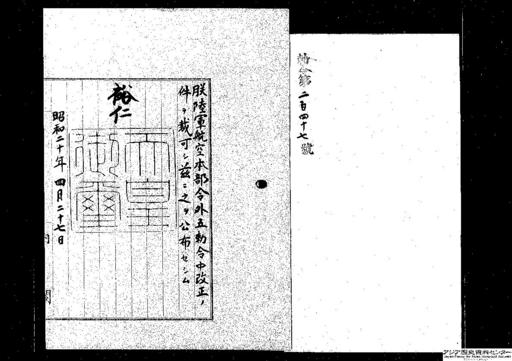 勅令第二百四十七號
朕陸軍航空本部令外五勅令中改正ノ
件ヲ裁可シ茲ニ之ヲ公布セシム
裕仁
天皇御璽
昭和二十年四月二十七日
内閣
アジア歴史資料センター